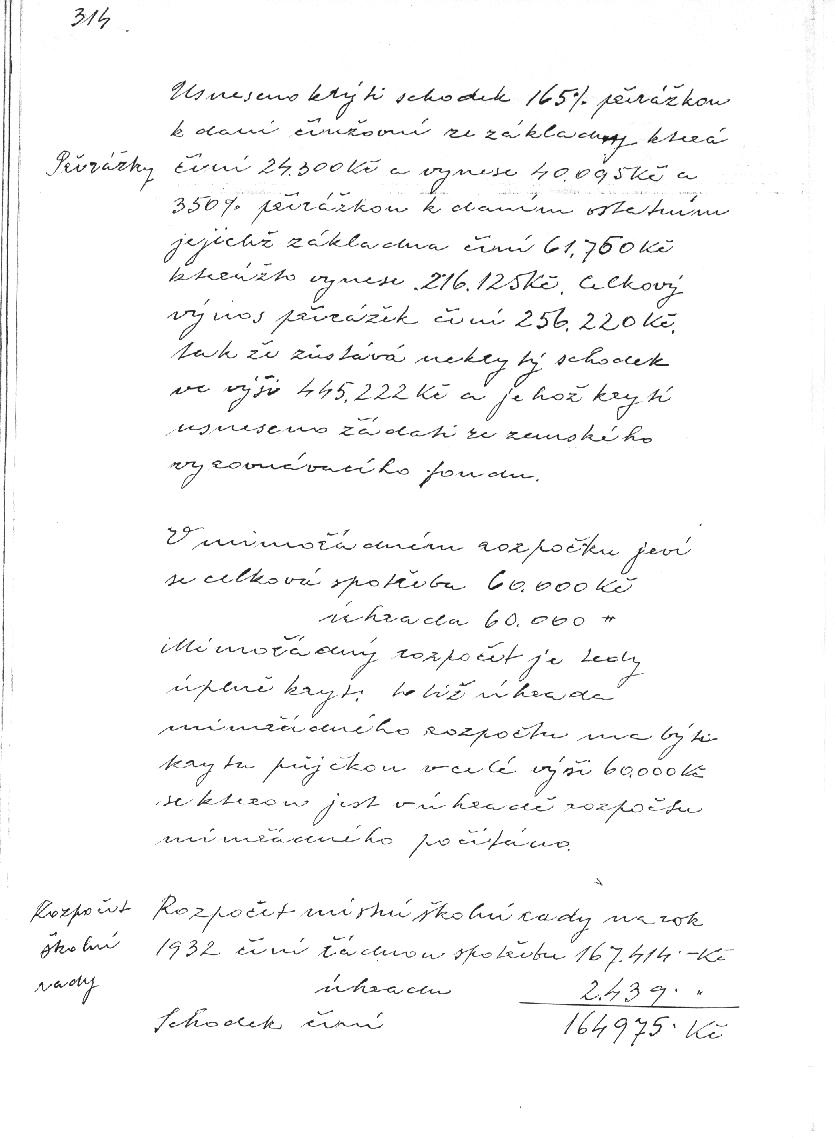 314
Usneseno krýti schodek 165% přirážkou
k dani činžovní ze základny která
Přirážky
činí 24.300Kč a vynese 40.095Kč a
350% přirážkou k daním ostatním
jejichž základna činí 61.750Kč
kterážto vynese 216.125Kč. Celkový
výnos přirážek činí 256.220Kč,
tak že zůstává nekrytý schodek
ve výši 445.222Kč a jehož krytí
usneseno žádati ze zemského
vyrovnávacího fondu.
V mimořádném rozpočtu jeví
se celková spotřeba 60.000Kč
úhrada 60.000 "
Mimořádný rozpočet je tedy
úplně kryt, totiž úhrada
mimořádného rozpočtu má býti
kryta půjčkou v celé výši 60.000Kč
se kterou jest v úhradě rozpočtu
mimořádného počítáno.
Rozpočet
školní
rady
Rozpočet místní školní rady na rok
1932 činí řádnou spotřebu 167.414·-Kč
úhradu 2.439· "
Schodek činí 164975· Kč